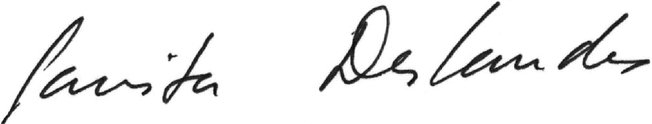 Savita Deslandes